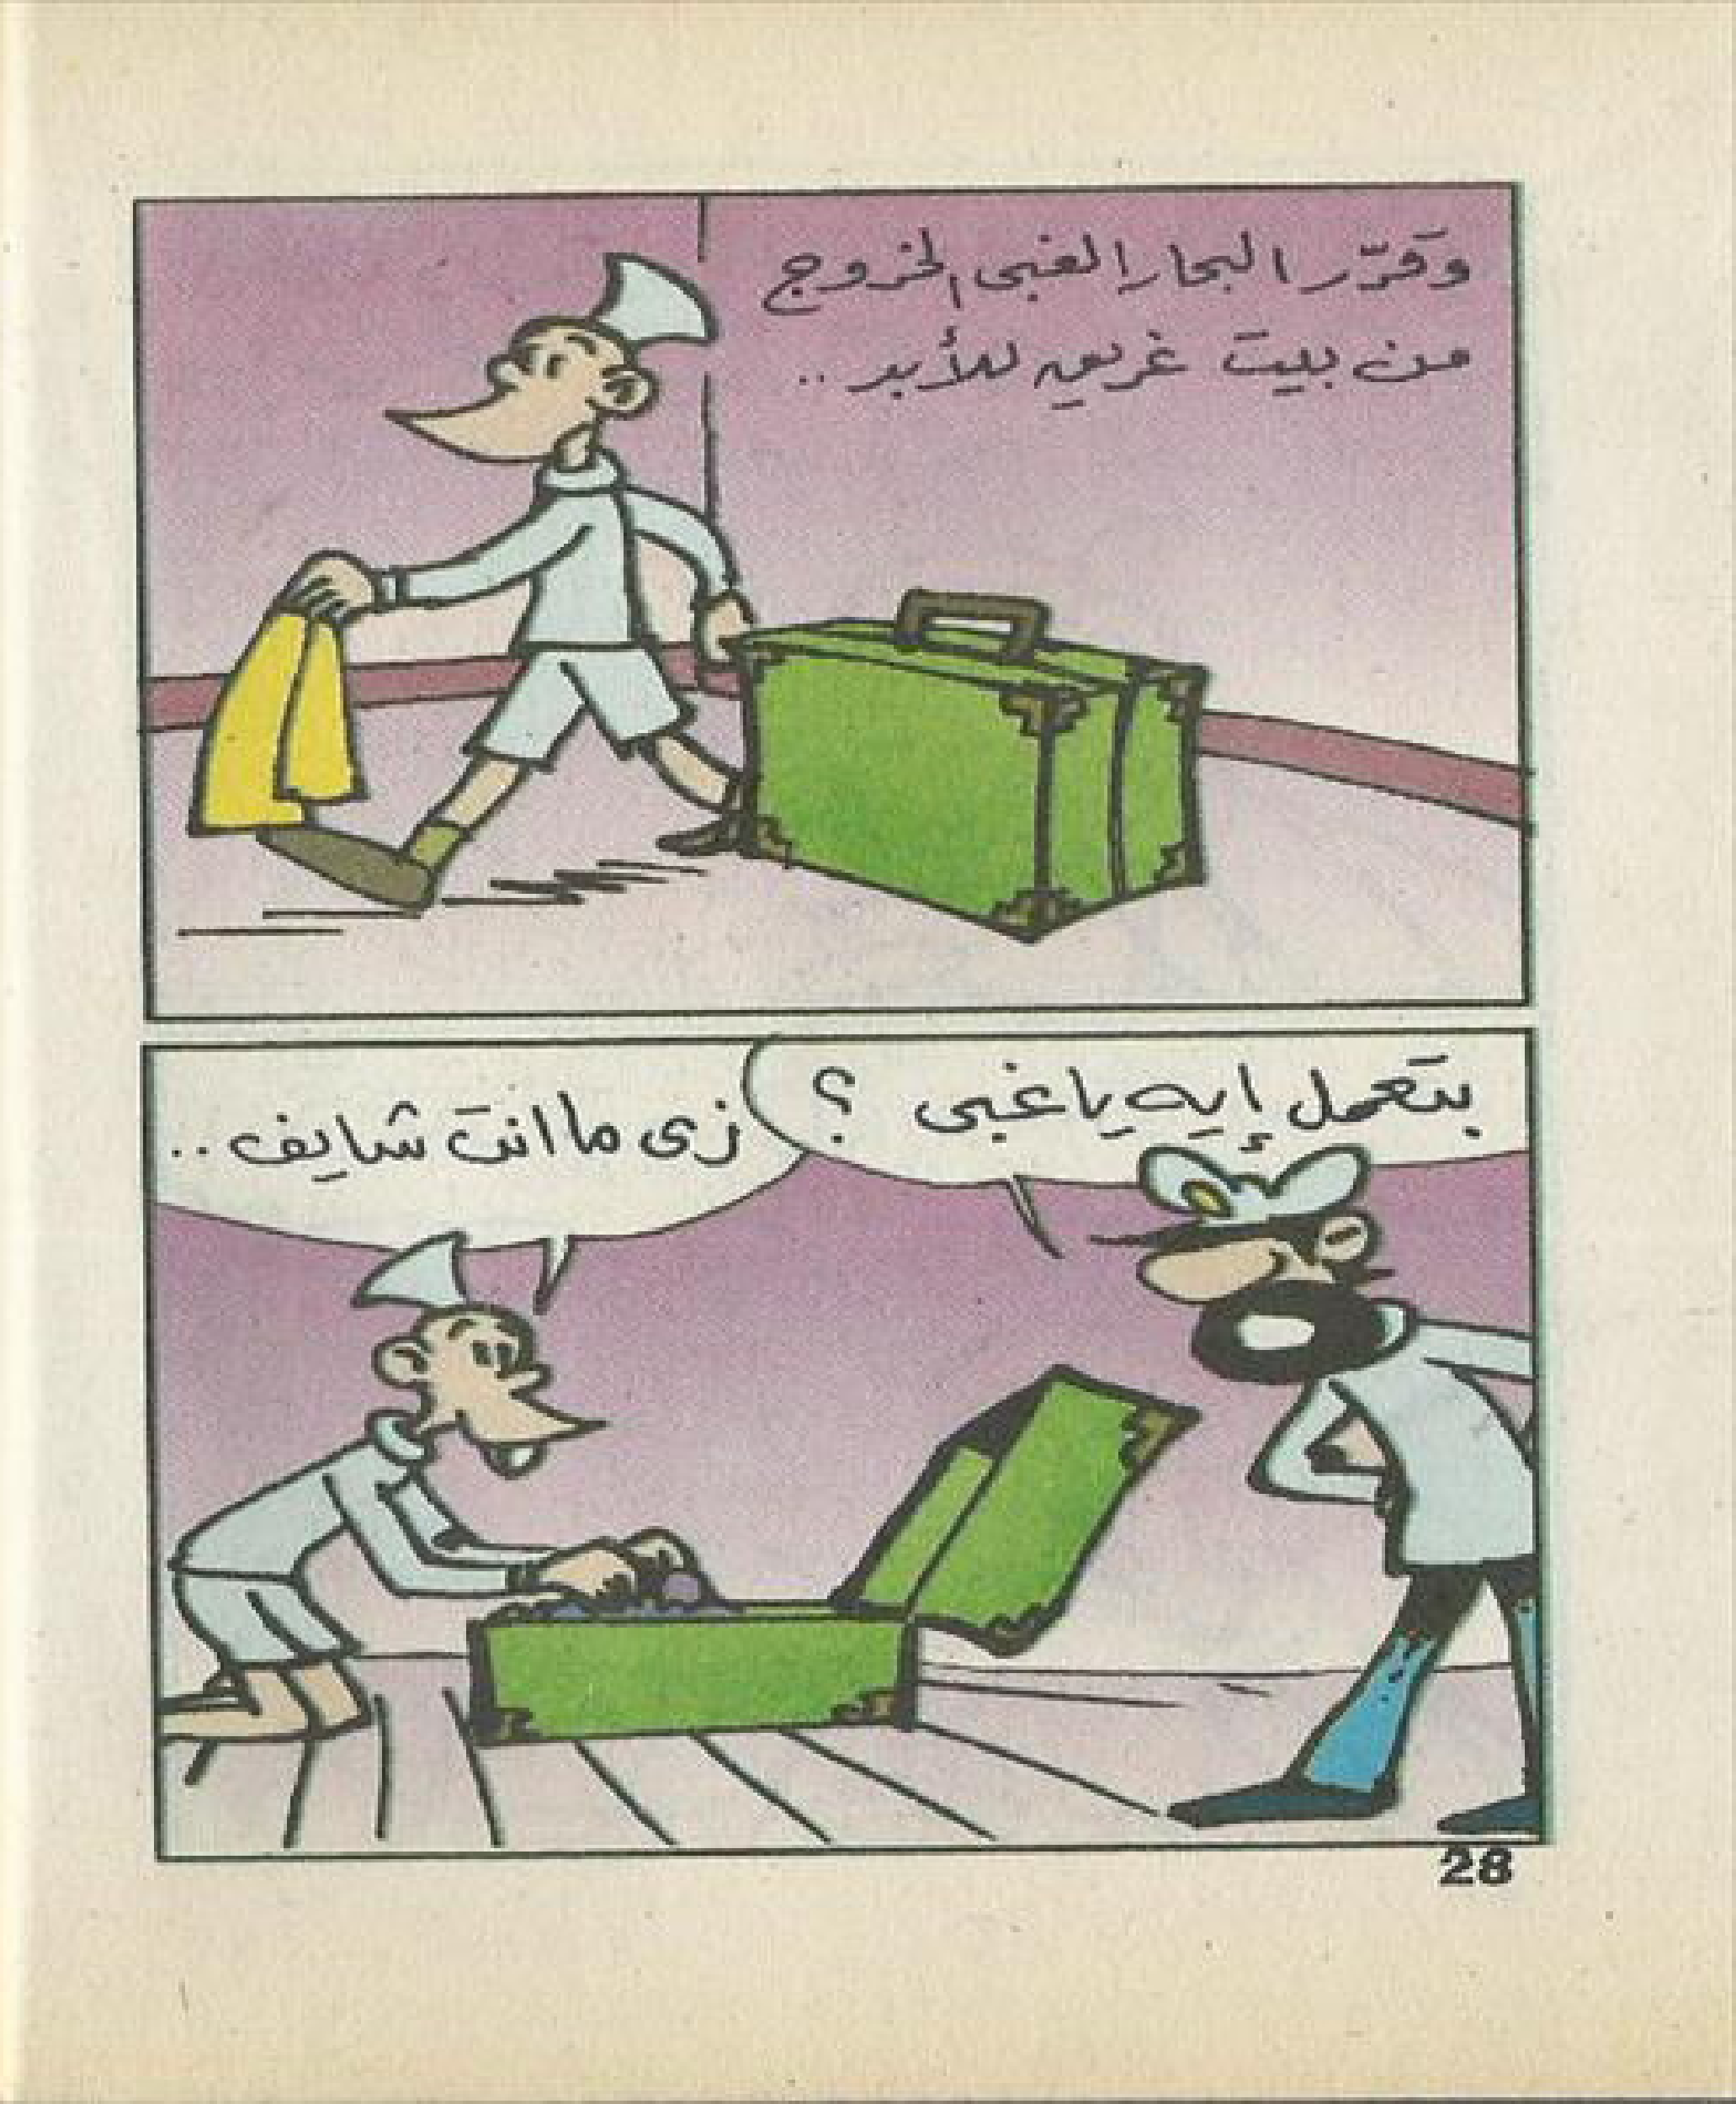 وقرّر البحار الغبى الخروج
من بيت غريمه للأبد ..
بتعمل إيه يا غبى ؟
زى ما انت شايف ..
28